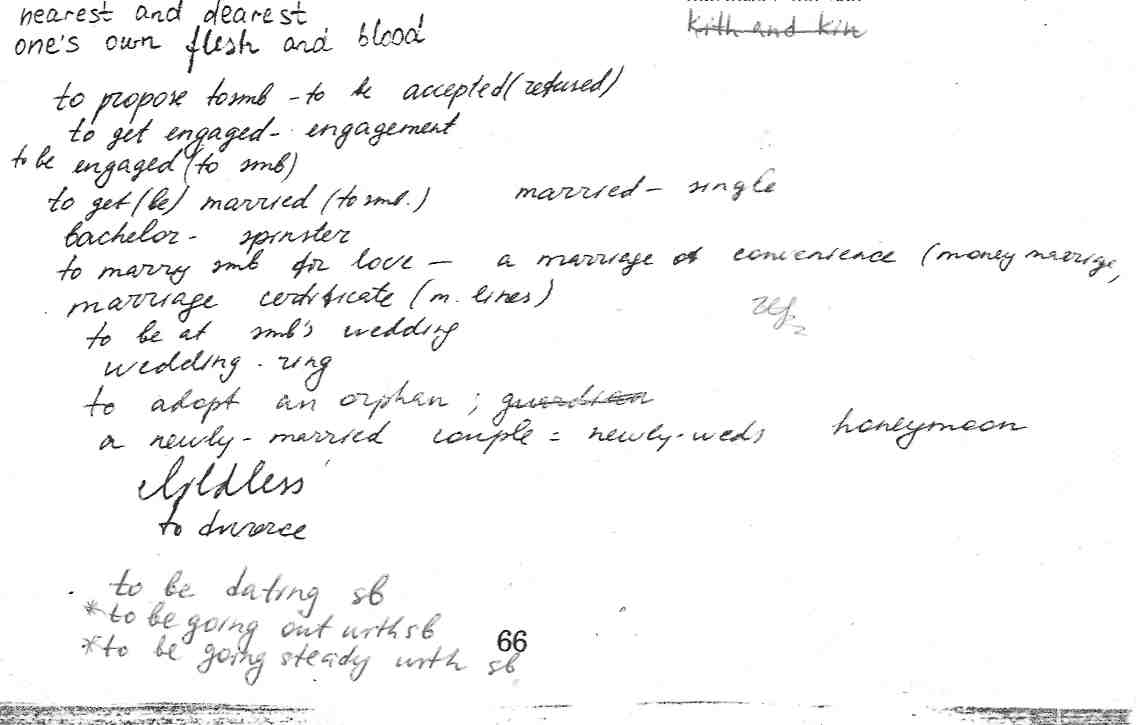 nearest and dearest
kith and kin
one's own flesh and blood
to propose to smb - to be accepted (refused)
to get engaged - engagement
to be engaged (to smb)
to get (be) married (to smb.) married - single
bachelor - spinster
to marry smb for love - a marriage of convenience (money marriage,
marriage certificate (m. lines)
to be at smb's wedding
wedding - ring
to adopt an orphan ; guardian
a newly-married couple = newly-weds honeymoon
childless
to divorce
to be dating sb
*to be going out with sb
*to be going steady with sb
66